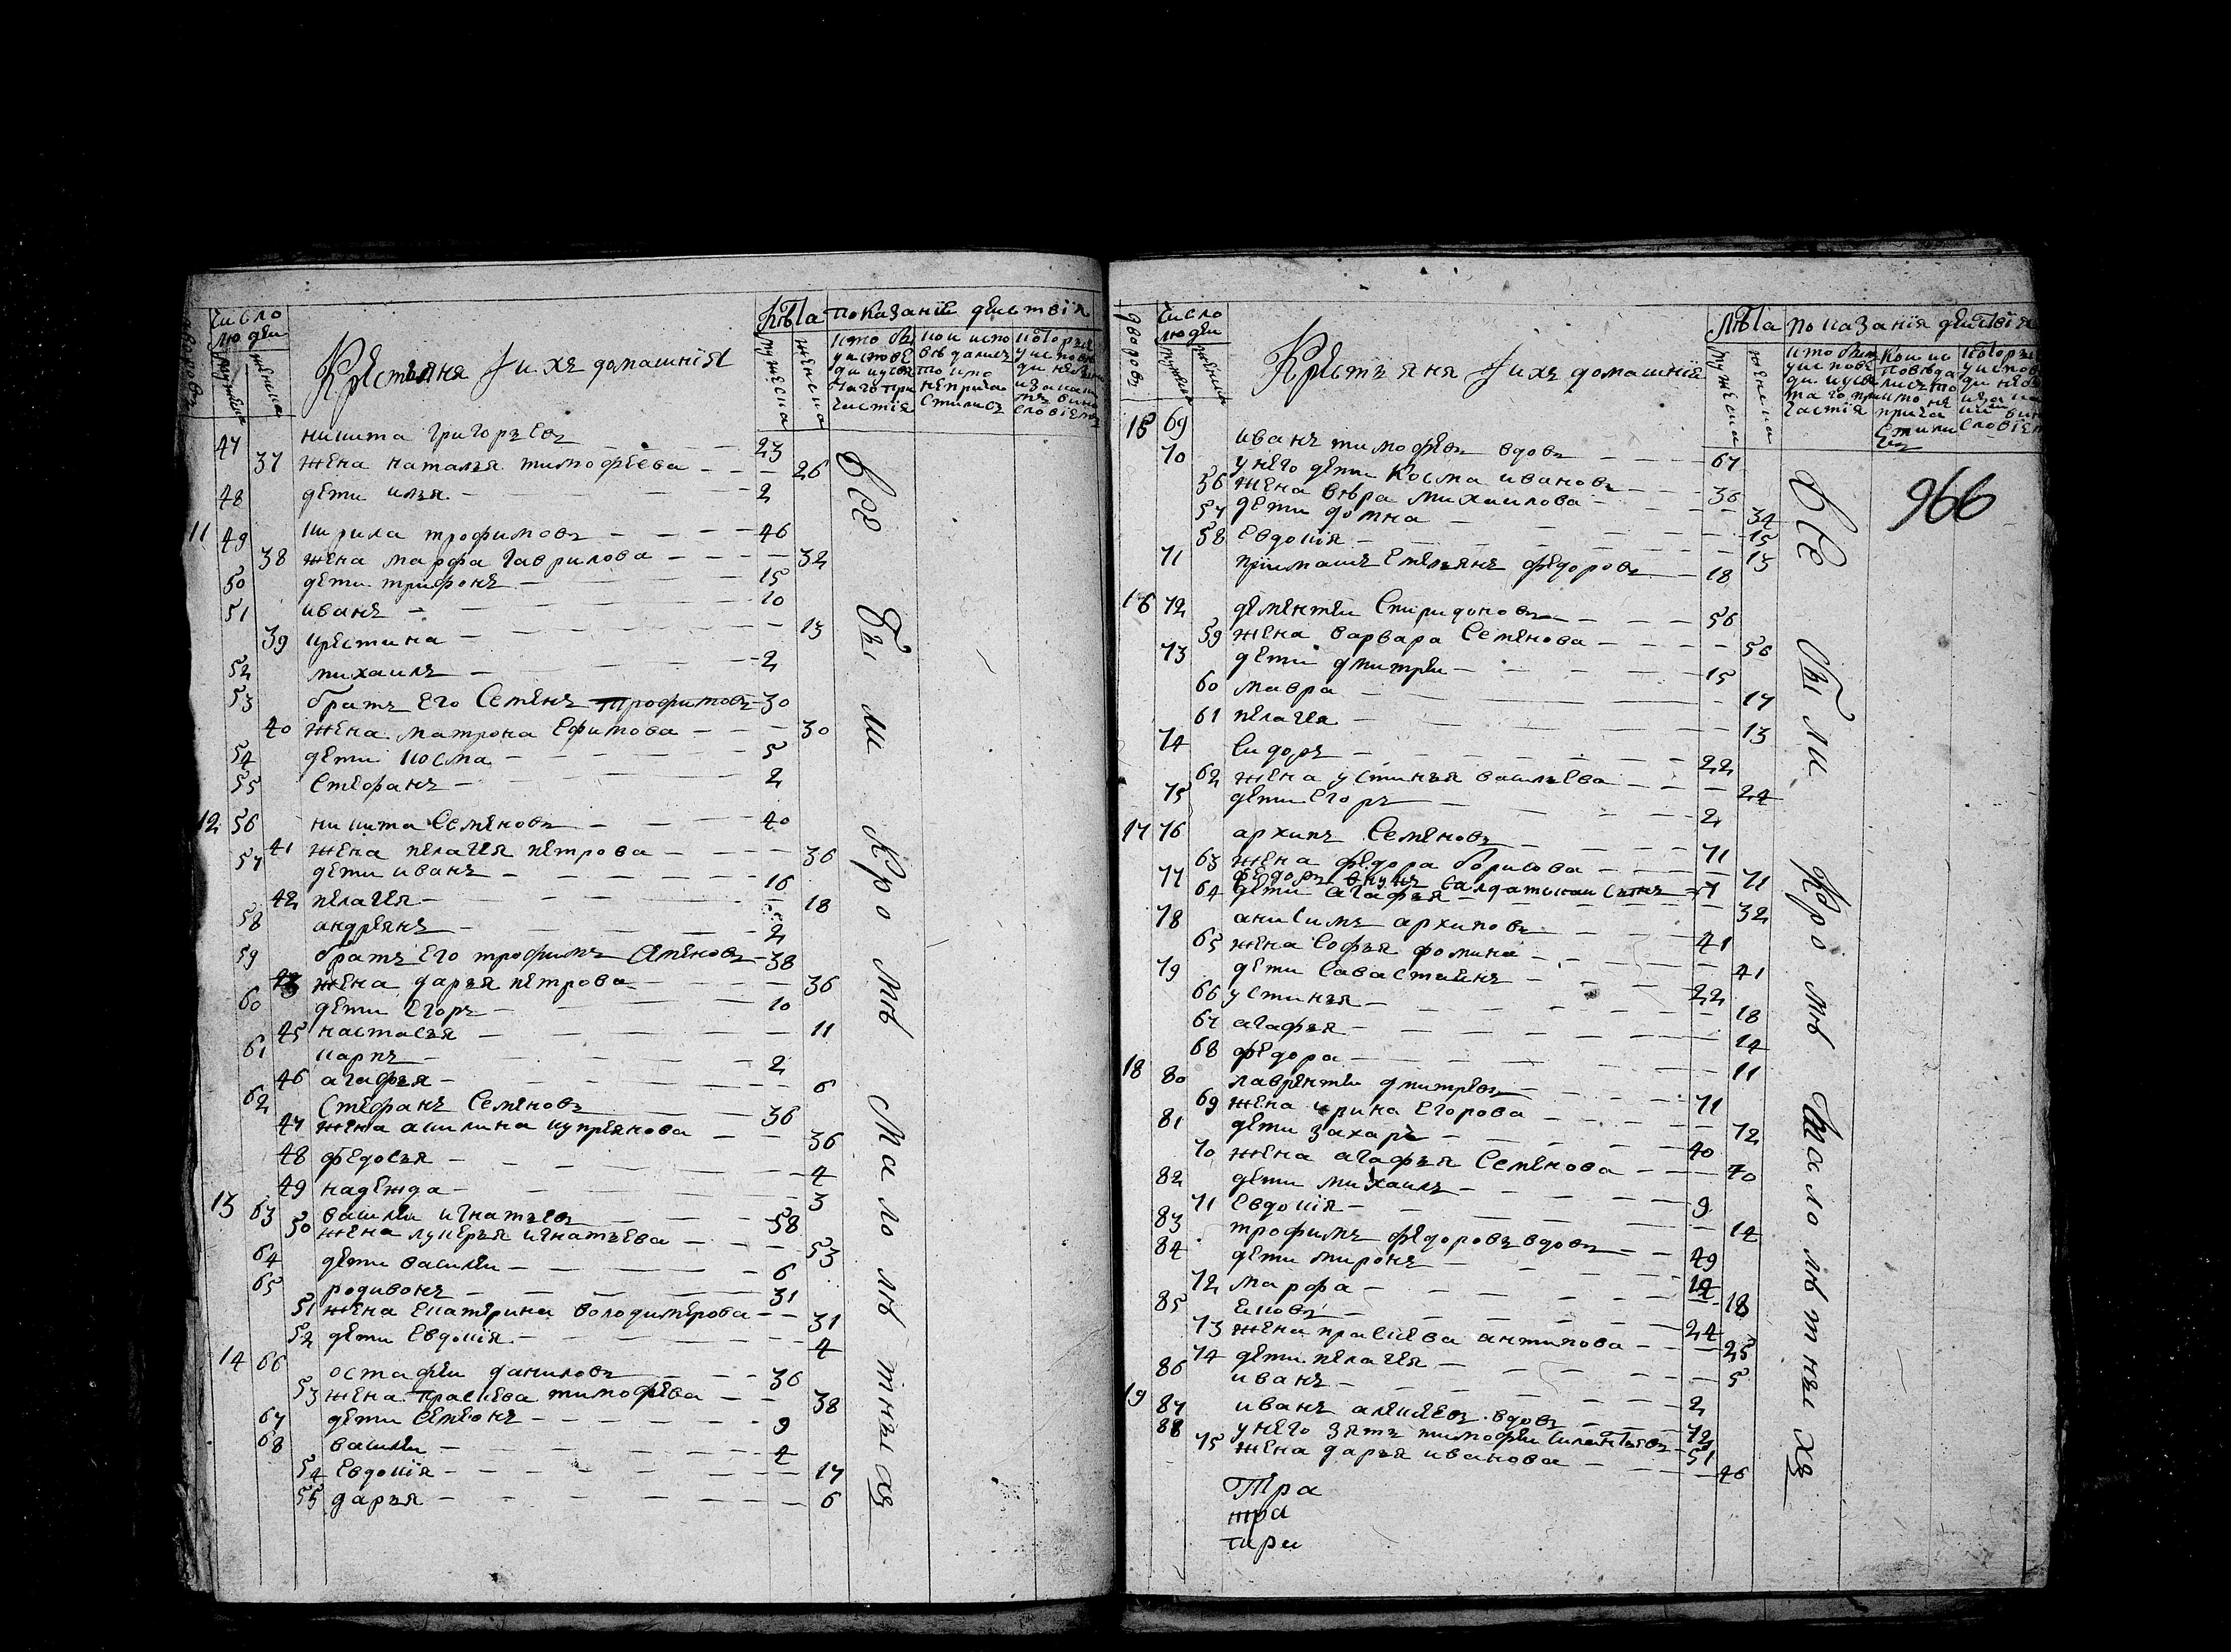 дворовъ
число людеи
мужеска
женска
Крестьяня и ихъ домашнїя
лѣта
мужеска
женска
показанїе деиствїя
47 никита григорьевъ 23
37 жена наталья тимофеева 26
48 дети илья 2
11 49 кирила трофимовъ 46
38 жена марфа гаврилова 32
50 дети трифонъ 15
51 иванъ 10
39 кристина 13
52 михаилъ 2
53 братъ его Семенъ трофимовъ 30
40 жена матрона Ефимова 30
54 дети косма 5
55 Стефанъ 2
12 56 никита Семеновъ 40
41 жена пелагея петрова 36
57 дети иванъ 16
42 пелагея 18
58 андреянъ 2
59 братъ его трофимъ Семеновъ 38
43 жена дарья петрова 36
60 дети Егоръ 10
45 настасья 11
61 карпъ 2
46 агафья 6
62 Стефанъ Семеновъ 36
47 жена акилина купреянова 36
48 федосья 4
49 надежда 3
13 63 василеи игнатьевъ 58
50 жена лукерья игнатьева 53
64 дети василеи 6
65 родивонъ 31
51 жена Екатерина володимерова 31
52 дети Евдокїя 4
14 66 остафеи даниловъ 36
53 жена прасковья тимофева 38
67 дети Семионъ 9
68 василеи 4
54 Евдокїя 17
55 дарья 6
всѣ были кромѣ малолѣтныхъ
дворовъ
число людеи
мужеска
женска
Крестьяня и ихъ домашнїе
лѣта
мужеска
женска
показанїя деиствїя
966
15 69 иванъ тимофевъ вдовъ 67
70 у него дети Косма ивановъ 36
56 жена вѣра михаилова 34
57 дети домна 15
58 Евдокїя 13
71 приимашъ Емельянъ федоровъ 18
16 72 дементеи Спиридоновъ 56
59 жена варвара Семенова 56
73 дети дмитреи 15
60 мавра 17
61 пелагея 13
74 Сидоръ 22
62 жена устинья васильева 24
75 дети Егоръ 2
17 76 архипъ Семеновъ 71
63 жена федора борисова 71
77 федоръ внукъ салдатскои сынъ 7
64 дети агафья 32
78 анисимъ архиповъ 41
65 жена Софья фомина 41
79 дети Савастьянъ 22
66 устинья 18
67 агафья 14
68 федора 11
18 80 лаврентеи дмитревъ 71
69 жена ирина Егорова 72
81 дети захаръ 40
70 жена агафья Семенова 40
82 дети михаилъ 9
71 Евдокїя 14
83 трофимъ федоровъ вдовъ 49
84 дети миронъ 14
72 марфа 18
85 яковъ 24
73 жена прасковья антипова 25
74 дети пелагея 5
86 иванъ 2
19 87 иванъ алексевъ вдовъ 72
88 у него зять тимофеи силантьевъ 51
75 жена дарья иванова 46
тра
тра
тири
всѣ были кромѣ малолѣтныхъ